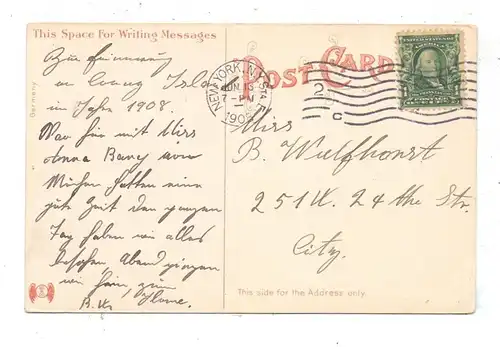 This Space For Writing Messages
POST CARD
Germany
Zur Erinnerung
an Coney Isla
im Jahr 1908.
War hir mit Miss
Anna
hatten eine
gute Zeit den ganzen
Tag haben wir alles
besehen Abend gingen
wir heim,
B. W. Home.
NEW YORK, N.Y. STA.
JUN 13
7-PM
1908
2
C
Miss
B. Wulfhorst
251 W. 24 the Str.
City.
This side for the Address only.